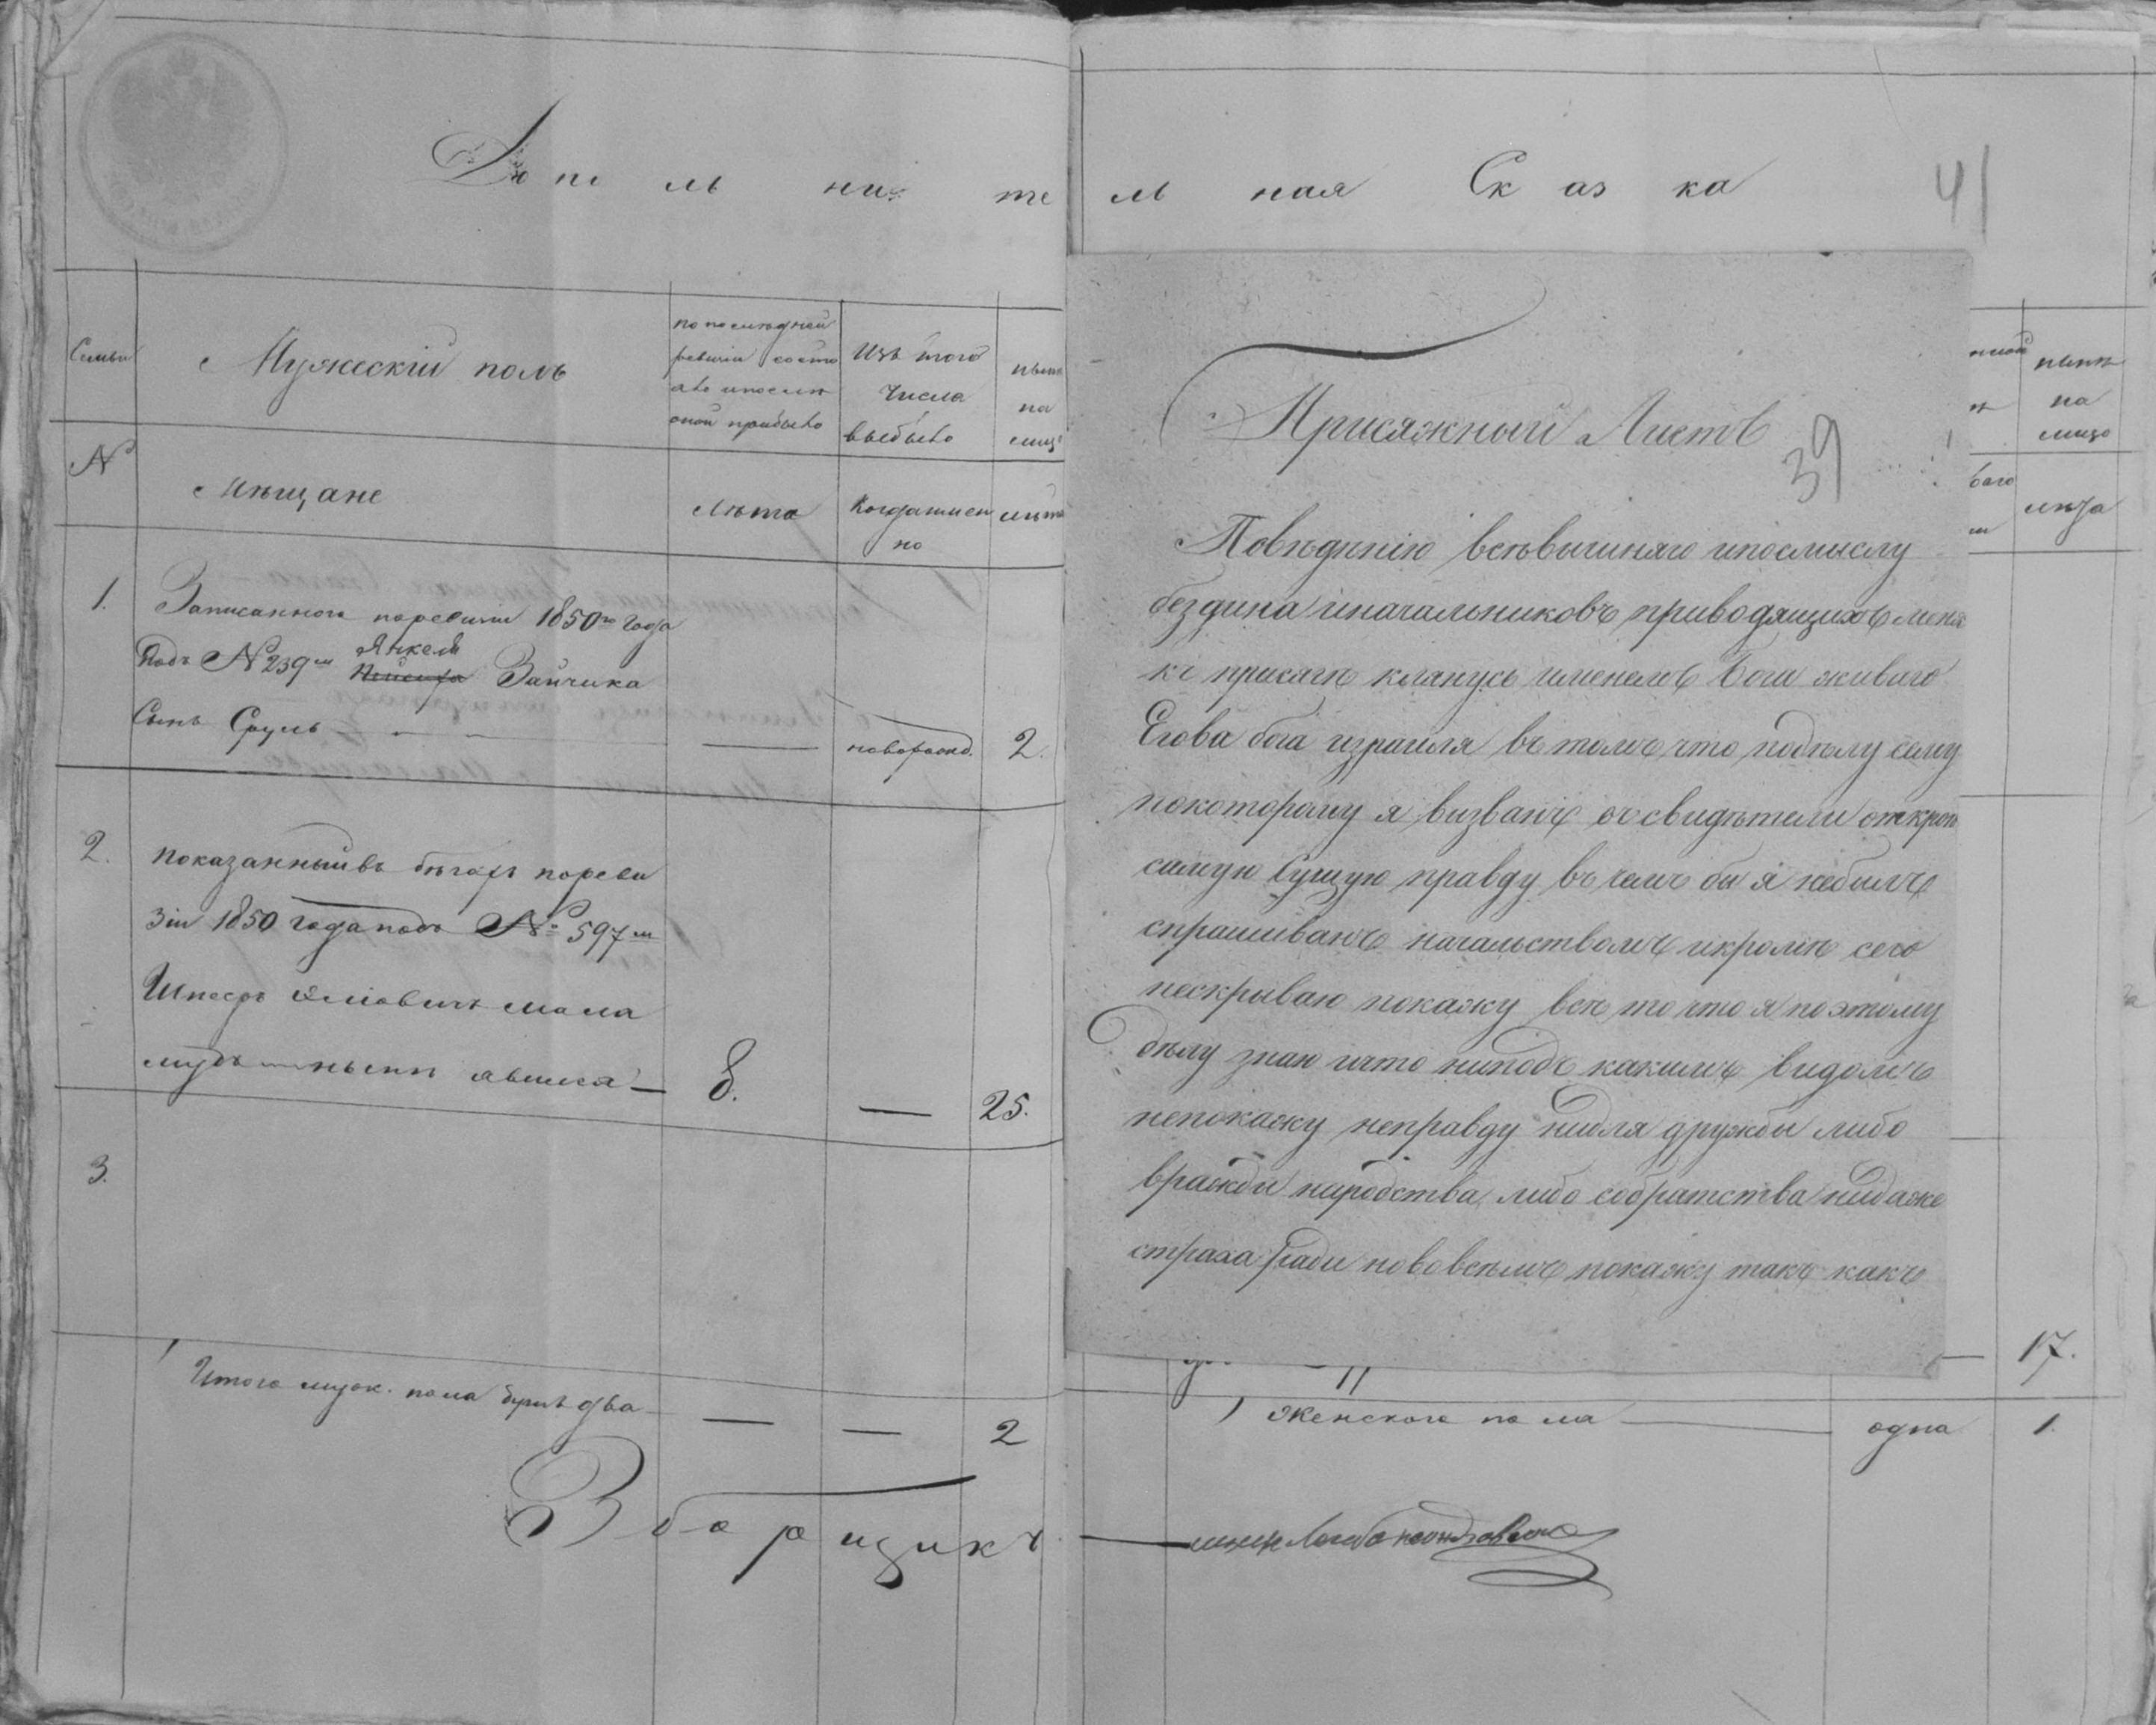 Дополнительная Сказка
41
Семьи
Мужескій полъ
по последней
ревизіи состо
яло и после
оной прибыло
Изъ того
числа
выбыло
ныне
на
лицо
№
Мещане
Лета
Когда имен
но
лета
1. Записанного по ревизіи 1850го года
Подъ № 239м Янкеля Зайчика
Сынъ Сруль — новорожд. 2.
2. показанный въ бегахъ по реви
зіи 1850 года подъ № 597м
мала
ныне явился — 8. — 25.
3.
Итого муж. пола душъ два — — 2
Зборщикъ
Присяжный Листъ
39
Поведенію всевишняго и посмыслу
бездина иначальниковъ приводящихъ меня
къ присяге клянусь именемъ Бога живаго
Егова бога израиля въ томъ, что поделу сему
покоторому я визванъ въ свидетели открою
самую сущую правду въ чемъ би я небилъ
спрашиванъ начальствомъ икроме сего
нескриваю покажу все то что я поэтому
делу знаю ичто ниподъ какимъ видомъ
непокажу неправду нидля дружби либо
вражди ниродства, либо собратства нидаже
страха ради нововсемъ покажу такъ какъ
ныне
на
лицо
лета
17.
Женского пола — одна 1.